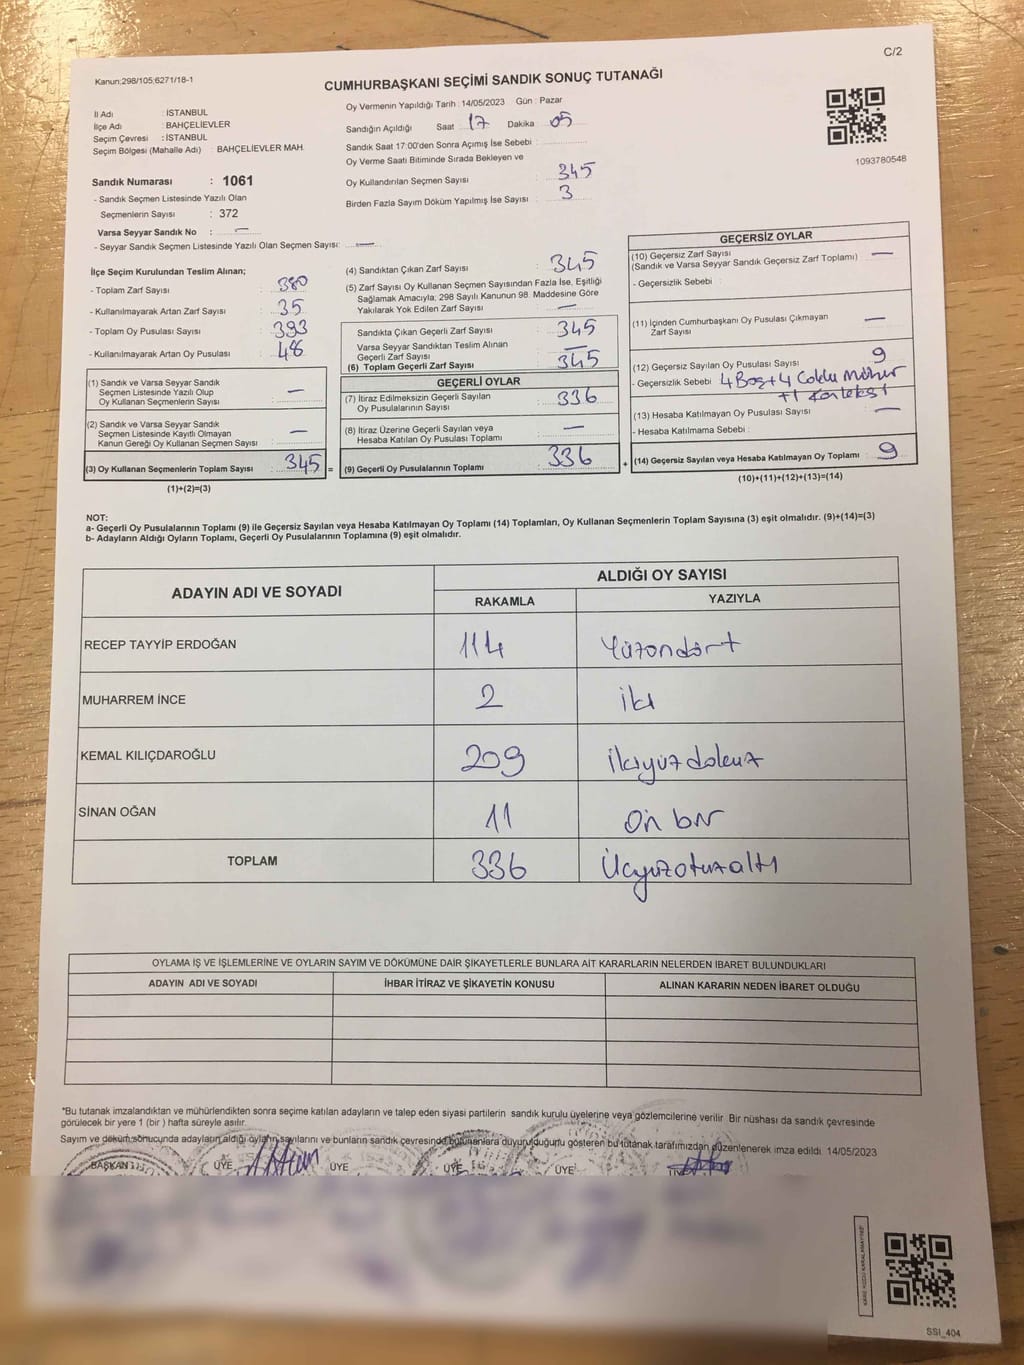 C/2
Kanun:298/105;6271/18-1
CUMHURBAŞKANI SEÇİMİ SANDIK SONUÇ TUTANAĞI
İl Adı : İSTANBUL
İlçe Adı : BAHÇELİEVLER
Seçim Çevresi : İSTANBUL
Seçim Bölgesi (Mahalle Adı) : BAHÇELİEVLER MAH.
Oy Vermenin Yapıldığı Tarih : 14/05/2023 Gün : Pazar
Sandığın Açıldığı Saat 17 Dakika 05
Sandık Saat 17:00'den Sonra Açımış İse Sebebi :
Oy Verme Saati Bitiminde Sırada Bekleyen ve
Oy Kullandırılan Seçmen Sayısı : 345
Birden Fazla Sayım Döküm Yapılmış İse Sayısı : 3
1093780548
Sandık Numarası : 1061
- Sandık Seçmen Listesinde Yazılı Olan
Seçmenlerin Sayısı : 372
Varsa Seyyar Sandık No : —
- Seyyar Sandık Seçmen Listesinde Yazılı Olan Seçmen Sayısı: —
İlçe Seçim Kurulundan Teslim Alınan;
- Toplam Zarf Sayısı : 380
- Kullanılmayarak Artan Zarf Sayısı : 35
- Toplam Oy Pusulası Sayısı : 393
- Kullanılmayarak Artan Oy Pusulası : 48
(1) Sandık ve Varsa Seyyar Sandık
Seçmen Listesinde Yazılı Olup
Oy Kullanan Seçmenlerin Sayısı : —
(2) Sandık ve Varsa Seyyar Sandık
Seçmen Listesinde Kayıtlı Olmayan
Kanun Gereği Oy Kullanan Seçmen Sayısı : —
(3) Oy Kullanan Seçmenlerin Toplam Sayısı : 345 =
(1)+(2)=(3)
(4) Sandıktan Çıkan Zarf Sayısı : 345
(5) Zarf Sayısı Oy Kullanan Seçmen Sayısından Fazla İse, Eşitliği
Sağlamak Amacıyla; 298 Sayılı Kanunun 98. Maddesine Göre
Yakılarak Yok Edilen Zarf Sayısı : —
Sandıkta Çıkan Geçerli Zarf Sayısı : 345
Varsa Seyyar Sandıktan Teslim Alınan
Geçerli Zarf Sayısı : —
(6) Toplam Geçerli Zarf Sayısı : 345
GEÇERLİ OYLAR
(7) İtiraz Edilmeksizin Geçerli Sayılan
Oy Pusulalarının Sayısı : 336
(8) İtiraz Üzerine Geçerli Sayılan veya
Hesaba Katılan Oy Pusulası Toplamı : —
(9) Geçerli Oy Pusulalarının Toplamı : 336 +
GEÇERSİZ OYLAR
(10) Geçersiz Zarf Sayısı : —
(Sandık ve Varsa Seyyar Sandık Geçersiz Zarf Toplamı)
- Geçersizlik Sebebi :
(11) İçinden Cumhurbaşkanı Oy Pusulası Çıkmayan
Zarf Sayısı : —
(12) Geçersiz Sayılan Oy Pusulası Sayısı : 9
- Geçersizlik Sebebi : 4 Boş+4 Coklu Mühür
+1
(13) Hesaba Katılmayan Oy Pusulası Sayısı : —
- Hesaba Katılmama Sebebi :
(14) Geçersiz Sayılan veya Hesaba Katılmayan Oy Toplamı : 9
(10)+(11)+(12)+(13)=(14)
NOT:
a- Geçerli Oy Pusulalarının Toplamı (9) ile Geçersiz Sayılan veya Hesaba Katılmayan Oy Toplamı (14) Toplamları, Oy Kullanan Seçmenlerin Toplam Sayısına (3) eşit olmalıdır. (9)+(14)=(3)
b- Adayların Aldığı Oyların Toplamı, Geçerli Oy Pusulalarının Toplamına (9) eşit olmalıdır.
ADAYIN ADI VE SOYADI
ALDIĞI OY SAYISI
RAKAMLA YAZIYLA
RECEP TAYYİP ERDOĞAN 114 Yüzondört
MUHARREM İNCE 2 iki
KEMAL KILIÇDAROĞLU 209 ikiyüzdokuz
SİNAN OĞAN 11 on bir
TOPLAM 336 Üçyüzotuzaltı
OYLAMA İŞ VE İŞLEMLERİNE VE OYLARIN SAYIM VE DÖKÜMÜNE DAİR ŞİKAYETLERLE BUNLARA AİT KARARLARIN NELERDEN İBARET BULUNDUKLARI
ADAYIN ADI VE SOYADI İHBAR İTİRAZ VE ŞİKAYETİN KONUSU ALINAN KARARIN NEDEN İBARET OLDUĞU
*Bu tutanak imzalandıktan ve mühürlendikten sonra seçime katılan adayların ve talep eden siyasi partilerin sandık kurulu üyelerine veya gözlemcilerine verilir. Bir nüshası da sandık çevresinde
görülecek bir yere 1 (bir) hafta süreyle asılır.
Sayım ve döküm sonucunda adayların aldığı oyların sayılarını ve bunların sandık çevresinde bulunanlara duyurulduğunu gösteren bu tutanak tarafımızdan düzenlenerek imza edildi. 14/05/2023
BAŞKAN ÜYE ÜYE ÜYE ÜYE
SSI_404